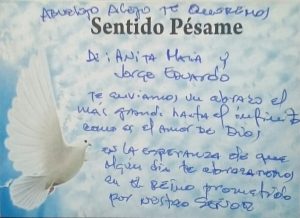 ABUELITO ALEJO TE QUEREMOS
Sentido Pésame
DE: ANITA MARIA Y
JORGE EDUARDO
TE ENVIAMOS UN ABRAZO EL
MÁS GRANDE HASTA EL INFINITO
COMO ES EL AMOR DE DIOS,
EN LA ESPERANZA DE QUE
ALGUN DIA TE ABRAZAREMOS
EN EL REINO PROMETIDO
POR NUESTRO SEÑOR